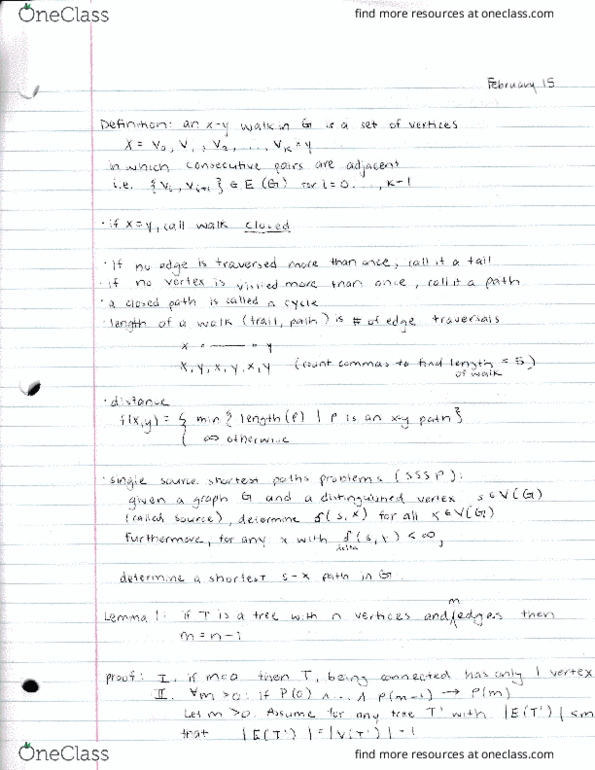 OneClass
find more resources at oneclass.com
February 15
Definition: an x-y walk in G is a set of vertices
x = v0, v1, v2, ..., vk = y
in which consecutive pairs are adjacent
i.e. {vi, vi+1} ∈ E(G) for i=0...,k-1
· if x=y, call walk closed
· if no edge is traversed more than once, call it a tail
· if no vertex is visited more than once, call it a path
· a closed path is called a cycle
· length of a walk (trail, path) is # of edge traversals
x — y
x,y,x,y,x,y (count commas to find length = 5)
of walk
· distance
δ(x,y) = { min { length(P) | P is an x-y path }
{ ∞ otherwise
· single source shortest paths problems (SSSP):
given a graph G and a distinguished vertex s∈V(G)
(called source), determine δ(s,x) for all x∈V(G)
furthermore, for any x with δ(s,x) < ∞,
delta
determine a shortest s-x path in G.
m
Lemma 1: if T is a tree with n vertices and edges then
m = n-1
proof: I. if m=0 then T, being connected has only 1 vertex
II. ∀m>0: if P(0) ∧ ... ∧ P(m-1) → P(m)
Let m>0. Assume for any tree T' with |E(T')| < m
that |E(T')| = |V(T')| - 1
OneClass
find more resources at oneclass.com